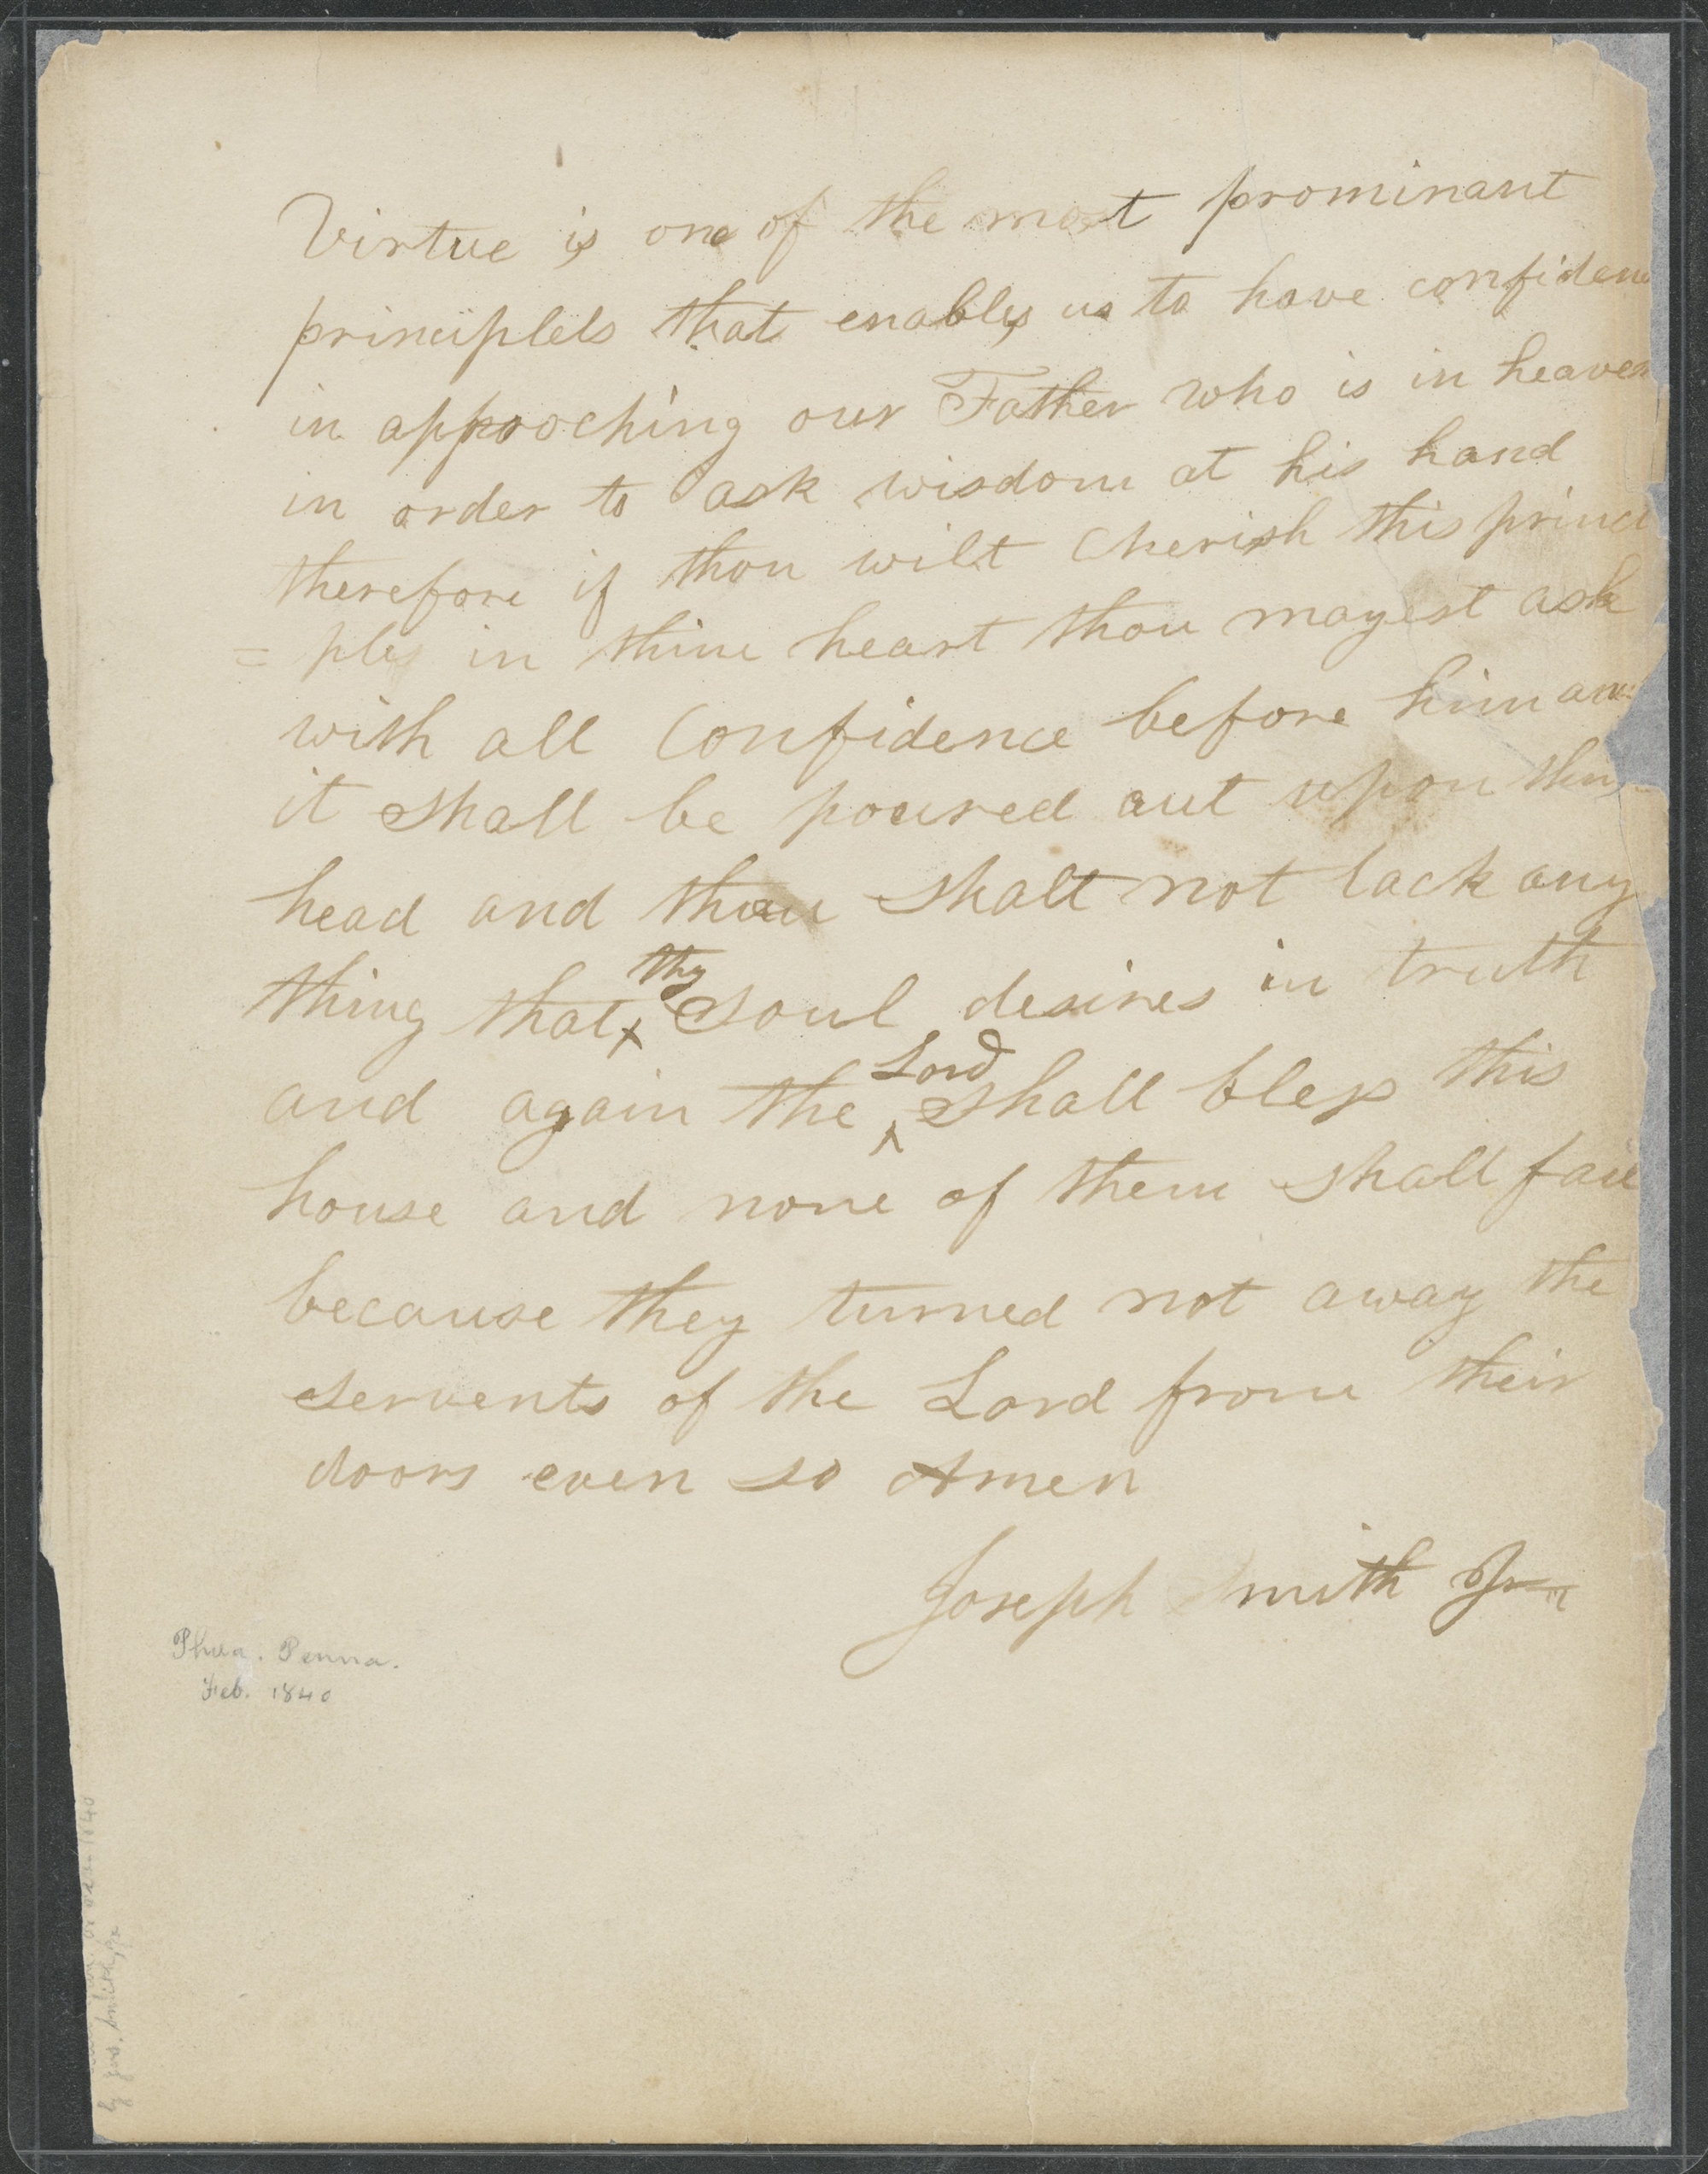 Virtue is one of the most prominant
principlels that enables us to have confidenc
in approoching our Father who is in heaven
in order to ask wisdom at his hand
therefore if thou wilt Cherish this princi
= ples in thine heart thou mayest ask
with all Confidence before him and
it shall be poured out upon thine
head and thou shalt not lack any
thing that thy soul desires in truth
and again the Lord shall bless this
house and none of them shall fail
because they turned not away the
servents of the Lord from their
doors even so Amen
Joseph Smith Jr
Phila. Penna.
Feb. 1840
1840
by Jos. Smith, Jr